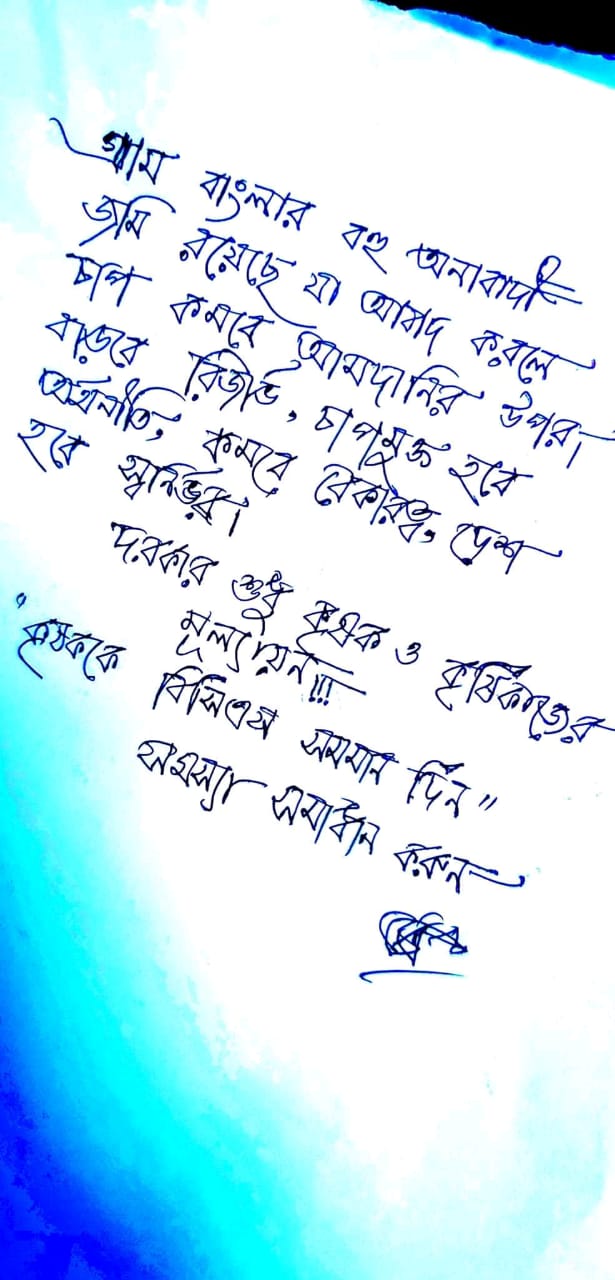 গ্রাম বাংলার বহু অনাবাদী
জমি রয়েছে যা আবাদ করলে
চাপ কমবে আমদানির উপর।
বাড়বে রিজার্ভ, চাপমুক্ত হবে
অর্থনীতি, কমবে বেকারত্ব, দেশ
হবে স্বনির্ভর।
দরকার শুধু কৃষক ও কৃষিকাজের
মূল্যায়ন!!!
"কৃষককে বিসিএস সমমান দিন"
সমস্যা সমাধান করুন